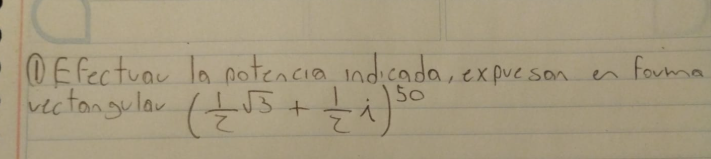 ① Efectuar la potencia indicada, expresan en forma
rectangular (1/2 √3 + 1/2 i)^50